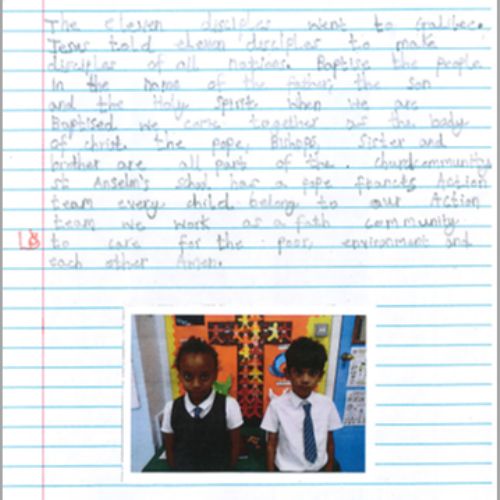 The eleven disciples went to Galilee.
Jesus told eleven disciples to make
disciples of all nations. Baptise the people
in the name of the father, the son
and the Holy Spirit when we are
Baptised we come together as the body
of christ the pope, Bishops, Sister and
brother are all part of the . churchcommunity
st Anselm's school has a pope francis Action
team every child belong to our Action
team we work as a faith community
to care for the poor, environment and
each other Amen.